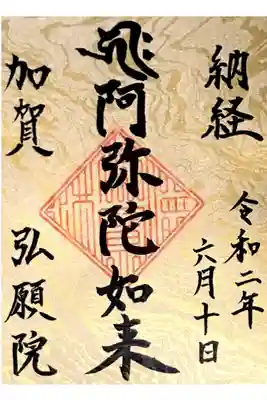 納経
令和二年
六月十日
阿弥陀如来
加賀 弘願院